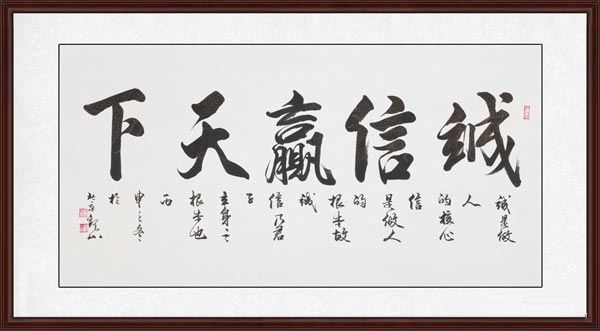 诚信赢天下
诚是做
人
的核心
信
是做人
的
根本故
诚
信乃君
子
立身之
根本也
丙
申之冬
於
北京观山